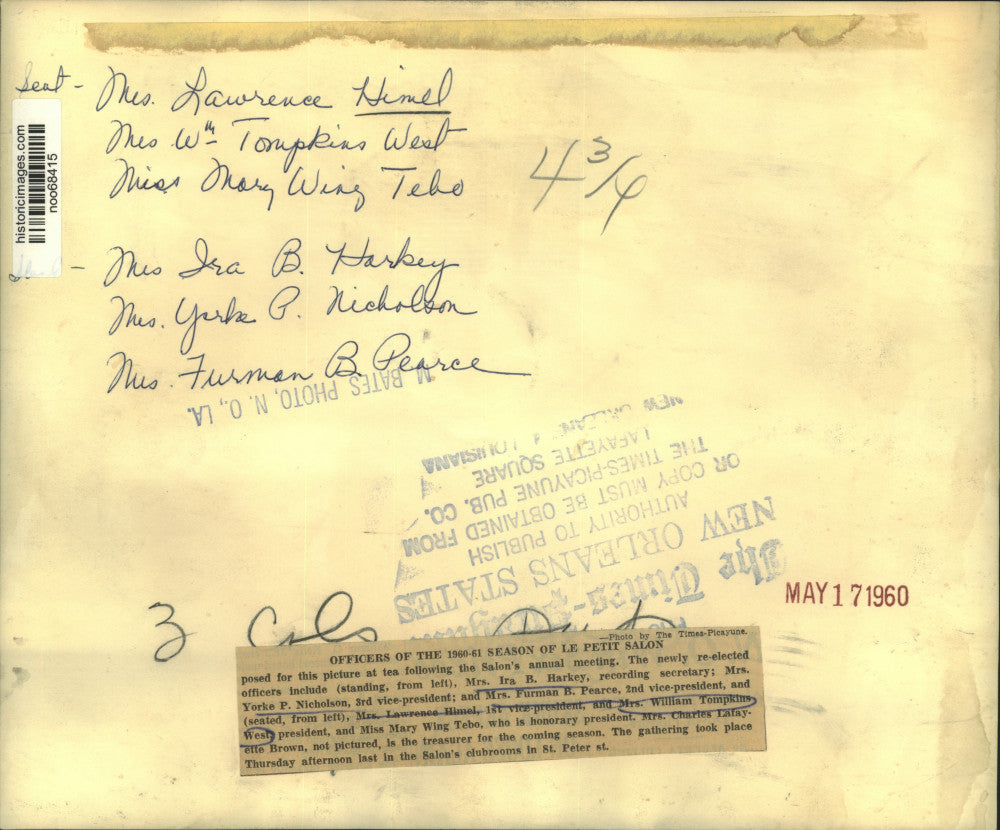 Seat - Mrs. Lawrence Himel
Mrs Wm Tompkins West
Miss Mary Wing Tebo
4 3/4
historicimages.com
noo68415
- Mrs Ira B. Harkey
Mrs. Yorke P. Nicholson
Mrs. Furman B. Pearce
M. BATES PHOTO, N. O., LA.
The Times-Picayune
NEW ORLEANS STATES
AUTHORITY TO PUBLISH
OR COPY MUST BE OBTAINED FROM
THE TIMES-PICAYUNE PUB. CO.
LAFAYETTE SQUARE
NEW ORLEANS LOUISIANA
MAY 17 1960
3 Cols
—Photo by The Times-Picayune.
OFFICERS OF THE 1960-61 SEASON OF LE PETIT SALON
posed for this picture at tea following the Salon's annual meeting. The newly re-elected
officers include (standing, from left), Mrs. Ira B. Harkey, recording secretary; Mrs.
Yorke P. Nicholson, 3rd vice-president; and Mrs. Furman B. Pearce, 2nd vice-president, and
(seated, from left), Mrs. Lawrence Himel, 1st vice-president, and Mrs. William Tompkins
West, president, and Miss Mary Wing Tebo, who is honorary president. Mrs. Charles Lafay-
ette Brown, not pictured, is the treasurer for the coming season. The gathering took place
Thursday afternoon last in the Salon's clubrooms in St. Peter st.